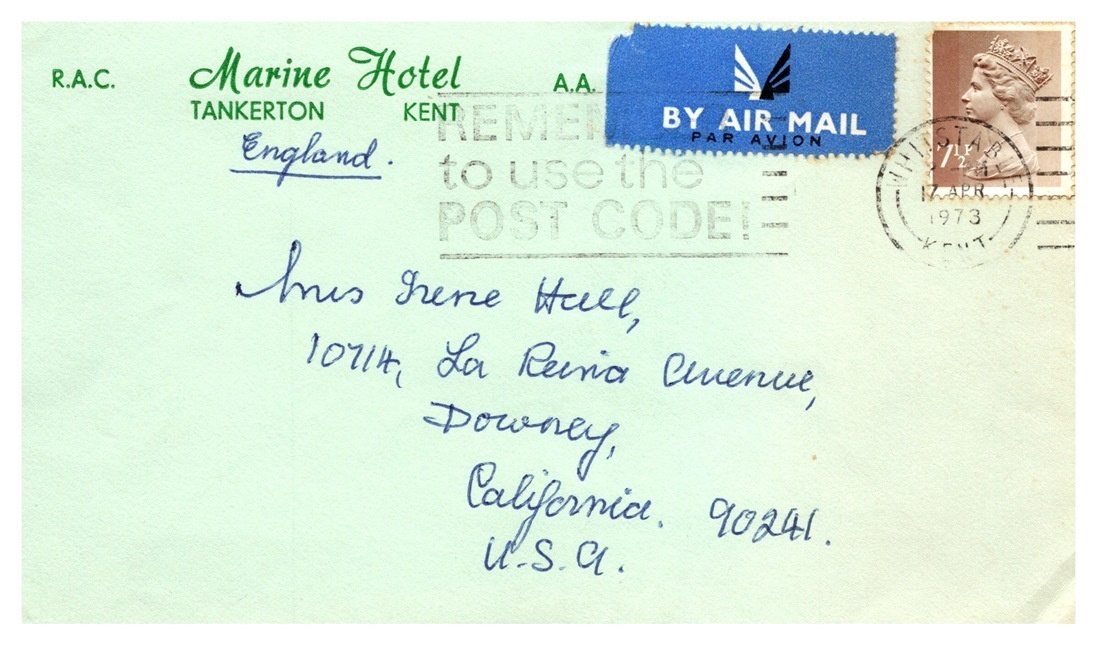 R.A.C. Marine Hotel A.A.
TANKERTON KENT
England.
BY AIR MAIL
PAR AVION
REMEM
to use the
POST CODE!
7½P
WHITSTABLE
17 APR
1973
KENT
Miss Irene Hall,
10714, La Reina Avenue,
Downey,
California. 90241.
U.S.A.